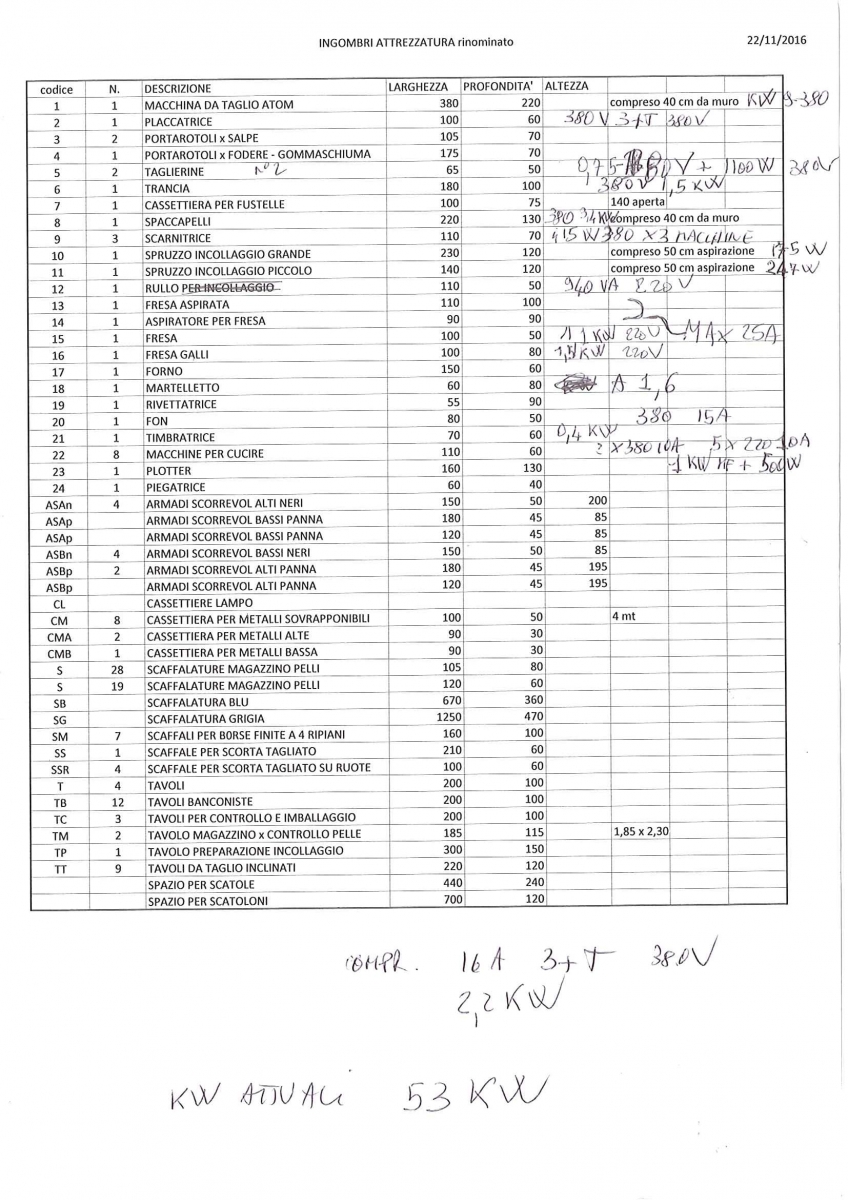 INGOMBRI ATTREZZATURA rinominato 22/11/2016
codice N. DESCRIZIONE LARGHEZZA PROFONDITA' ALTEZZA
1 1 MACCHINA DA TAGLIO ATOM 380 220 compreso 40 cm da muro KW 380
2 1 PLACCATRICE 100 60 380 V 3+T 380V
3 2 PORTAROTOLI x SALPE 105 70
4 1 PORTAROTOLI x FODERE - GOMMASCHIUMA 175 70
5 2 TAGLIERINE N° 2 65 50 0,75 V + 1100 W 380V
6 1 TRANCIA 180 100 380V 1,5 KW
7 1 CASSETTIERA PER FUSTELLE 100 75 140 aperta
8 1 SPACCAPELLI 220 130 380 KW compreso 40 cm da muro
9 3 SCARNITRICE 110 70 415 W 380 X 3 MACCHINE
10 1 SPRUZZO INCOLLAGGIO GRANDE 230 120 compreso 50 cm aspirazione 175 W
11 1 SPRUZZO INCOLLAGGIO PICCOLO 140 120 compreso 50 cm aspirazione 247 W
12 1 RULLO PER INCOLLAGGIO 110 50 940 VA 220 V
13 1 FRESA ASPIRATA 110 100
14 1 ASPIRATORE PER FRESA 90 90
15 1 FRESA 100 50 1 KW 220V MAX 25A
16 1 FRESA GALLI 100 80 1,5 KW 220V
17 1 FORNO 150 60
18 1 MARTELLETTO 60 80 A 1,6
19 1 RIVETTATRICE 55 90
20 1 FON 80 50 380 15A
21 1 TIMBRATRICE 70 60 0,4 KW
22 8 MACCHINE PER CUCIRE 110 60 X 380 10A 5 X 220 10A
23 1 PLOTTER 160 130 1 KW + 500W
24 1 PIEGATRICE 60 40
ASAn 4 ARMADI SCORREVOL ALTI NERI 150 50 200
ASAp ARMADI SCORREVOL BASSI PANNA 180 45 85
ASAp ARMADI SCORREVOL BASSI PANNA 120 45 85
ASBn 4 ARMADI SCORREVOL BASSI NERI 150 50 85
ASBp 2 ARMADI SCORREVOL ALTI PANNA 180 45 195
ASBp ARMADI SCORREVOL ALTI PANNA 120 45 195
CL CASSETTIERE LAMPO
CM 8 CASSETTIERA PER METALLI SOVRAPPONIBILI 100 50 4 mt
CMA 2 CASSETTIERA PER METALLI ALTE 90 30
CMB 1 CASSETTIERA PER METALLI BASSA 90 30
S 28 SCAFFALATURE MAGAZZINO PELLI 105 80
S 19 SCAFFALATURE MAGAZZINO PELLI 120 60
SB SCAFFALATURA BLU 670 360
SG SCAFFALATURA GRIGIA 1250 470
SM 7 SCAFFALI PER B0RSE FINITE A 4 RIPIANI 160 100
SS 1 SCAFFALE PER SCORTA TAGLIATO 210 60
SSR 4 SCAFFALE PER SCORTA TAGLIATO SU RUOTE 100 60
T 4 TAVOLI 200 100
TB 12 TAVOLI BANCONISTE 200 100
TC 3 TAVOLI PER CONTROLLO E IMBALLAGGIO 200 100
TM 2 TAVOLO MAGAZZINO x CONTROLLO PELLE 185 115 1,85 x 2,30
TP 1 TAVOLO PREPARAZIONE INCOLLAGGIO 300 150
TT 9 TAVOLI DA TAGLIO INCLINATI 220 120
SPAZIO PER SCATOLE 440 240
SPAZIO PER SCATOLONI 700 120
COMPR. 16 A 3+T 380V
2,2 KW
KW ATTUALI 53 KW